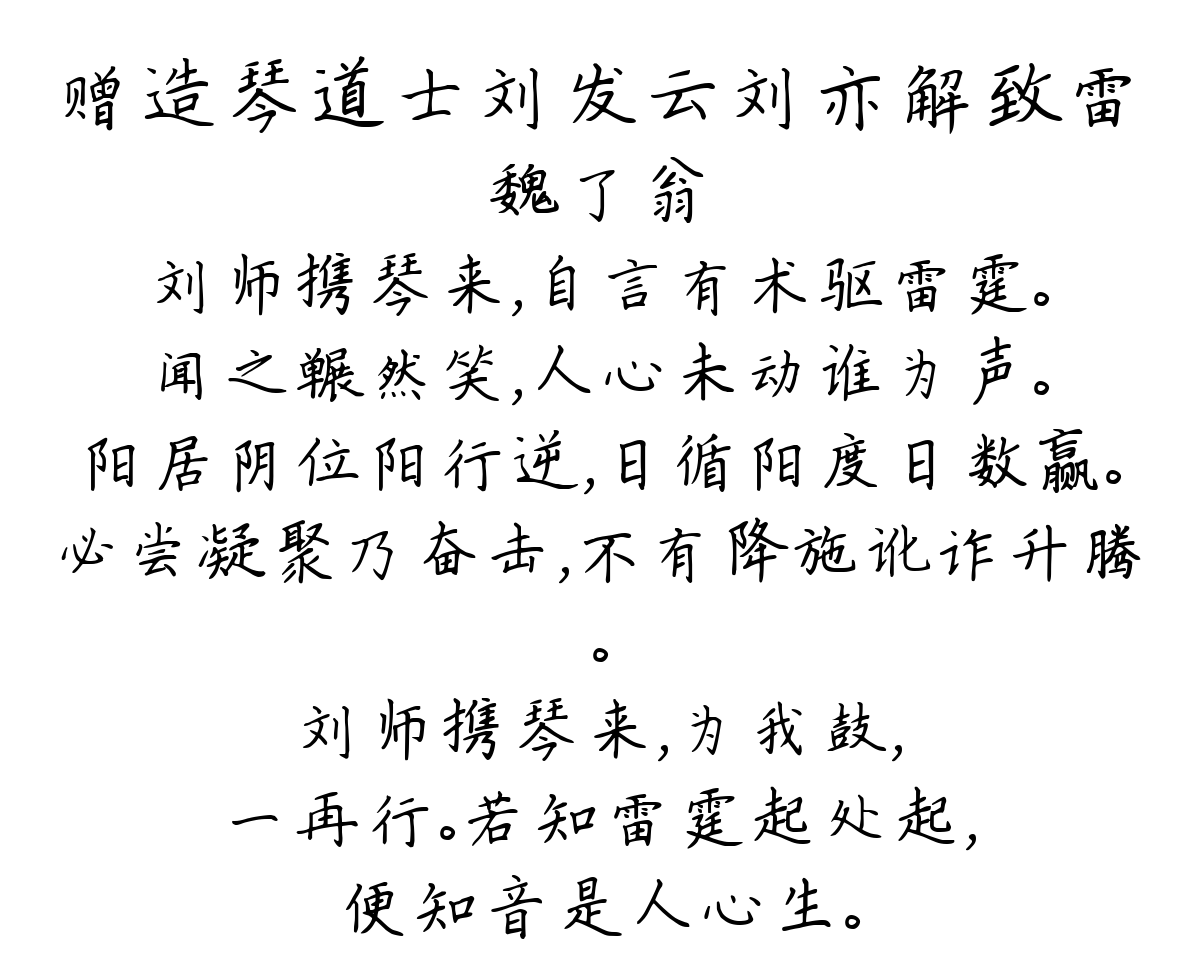 赠造琴道士刘发云刘亦解致雷
魏了翁
刘师携琴来,自言有术驱雷霆。
闻之冁然笑,人心未动谁为声。
阳居阴位阳行逆,日循阳度日数赢。
必尝凝聚乃奋击,不有降施讹诈升腾
。
刘师携琴来,为我鼓,
一再行。若知雷霆起处起,
便知音是人心生。